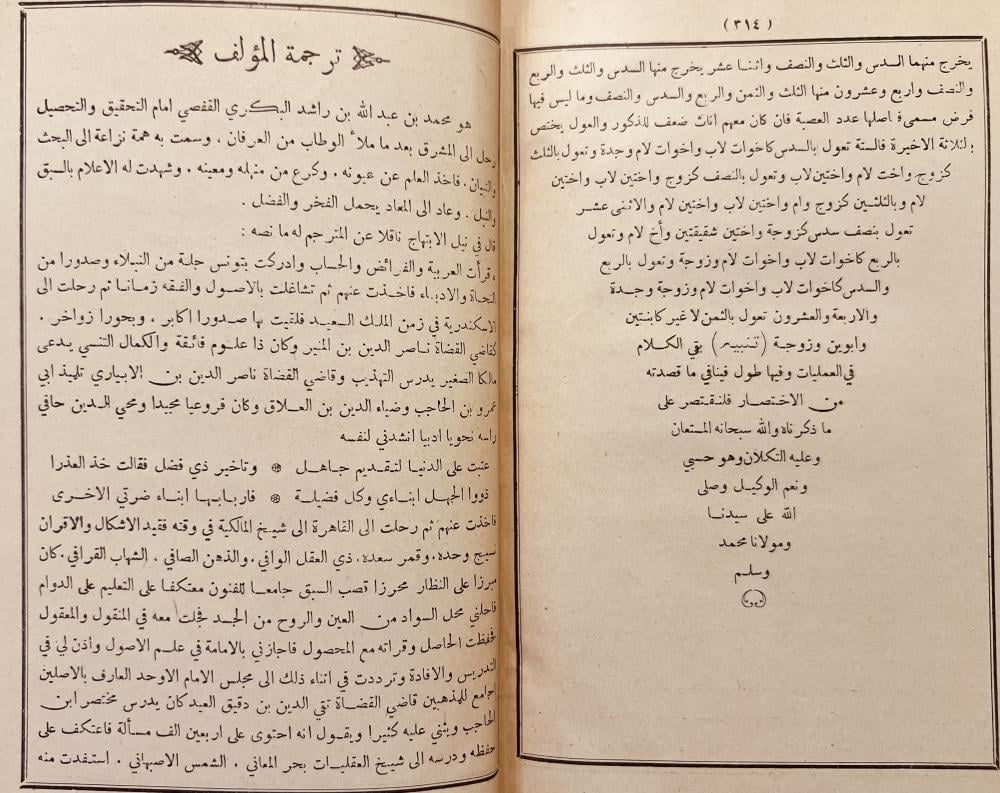 ( ٣١٤ )
يخرج منهما السدس والثلث والنصف واثنا عشر يخرج منها السدس والثلث والربع
والنصف واربع وعشرون منها الثلث والثمن والربع والسدس والنصف وما ليس فيها
فرض مسمى فاصلها عدد العصبة فان كان معهم اناث ضعف للذكور والعول يختص
بالثلاثة الاخيرة فالستة تعول بالسدس كاخوات لاب واخوات لام وجدة وتعول بالثلث
كزوج واخت لام واختين لاب وتعول بالنصف كزوج واختين لاب واختين
لام وبالثلثين كزوج وام واختين لاب واختين لام والاثنى عشر
تعول بنصف سدس كزوجة واختين شقيقتين وأخ لام وتعول
بالربع كاخوات لاب واخوات لام وزوجة وتعول بالربع
والسدس كاخوات لاب واخوات لام وزوجة وجدة
والاربعة والعشرون تعول بالثمن لا غير كابنتين
وابوين وزوجة (تنبيه) بقي الكلام
في العمليات وفيها طول فينافي ما قصدته
من الاختصار فلنقتصر على
ما ذكرناه والله سبحانه المستعان
وعليه التكلان وهو حسبي
ونعم الوكيل وصلى
الله على سيدنا
ومولانا محمد
وسلم
ترجمة المؤلف
هو محمد بن عبد الله بن راشد البكري القفصي امام التحقيق والتحصيل
رحل الى المشرق بعد ما ملأ الوطاب من العرفان ، وسمت به همة نزاعة الى البحث
والتبيان . فاخذ العلم عن عيونه . وكرع من منهله ومعينه . وشهدت له الاعلام بالسبق
والنبل . وعاد الى المعاد يحمل الفخر والفضل .
قال في نيل الابتهاج ناقلا عن المترجم له ما نصه :
، قرأت العربية والفرائض والحساب وادركت بتونس جلة من النبلاء وصدورا من
النحاة والادباء فاخذت عنهم ثم تشاغلت بالاصول والفقه زمانا ثم رحلت الى
الاسكندرية في زمن الملك السعيد فلقيت بها صدورا اكابر ، وبحورا زواخر .
كقاضي القضاة ناصر الدين بن المنير وكان ذا علوم فائقة والكمال التنسي يدعى
مالكا الصغير يدرس التهذيب وقاضي القضاة ناصر الدين بن الابياري تلميذ ابي
عمرو بن الحاجب وضياء الدين بن العلاق وكان فروعيا مجيدا ومحي الدين حافي
راسه نحويا اديبا انشدني لنفسه
عتبت على الدنيا لتقديم جاهل ۞ وتاخير ذي فضل فقالت خذ العذرا
ذووا الجهل ابناءي وكل فضيلة ۞ فاربابها ابناء ضرتي الاخرى
فاخذت عنهم ثم رحلت الى القاهرة الى شيخ المالكية في وقته فقيد الاشكال والاقران
نسيج وحده . وقمر سعده . ذي العقل الوافي . والذهن الصافي ، الشهاب القرافي . كان
مبرزا على النظار محرزا قصب السبق جامعا للفنون معتكفا على التعليم على الدوام
فاحلني محل السواد من العين والروح من الجسد فجلت معه في المنقول والمعقول
فحفظت الحاصل وقراته مع المحصول فاجازني بالامامة في علم الاصول وأذن لي في
التدريس والافادة وترددت في اثناء ذلك الى مجلس الامام الاوحد العارف بالاصلين
جامع للمذهبين قاضي القضاة تقي الدين بن دقيق العيد كان يدرس مختصر ابن
الحاجب ويثني عليه كثيرا ويقول انه احتوى على اربعين الف مسألة فاعتكف على
حفظه ودرسه الى شيخ العقليات بحر المعاني . الشمس الاصبهاني . استفدت منه